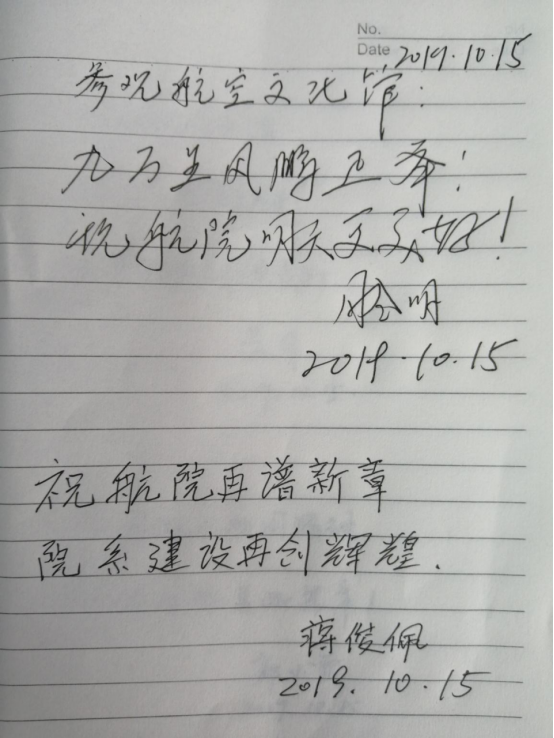 No.
Date 2019.10.15
参观航空文化馆:
九万里风鹏正举!
祝航院明天更美好!
明
2019.10.15
祝航院再谱新章
院系建设再创辉煌.
蒋俊佩
2019.10.15